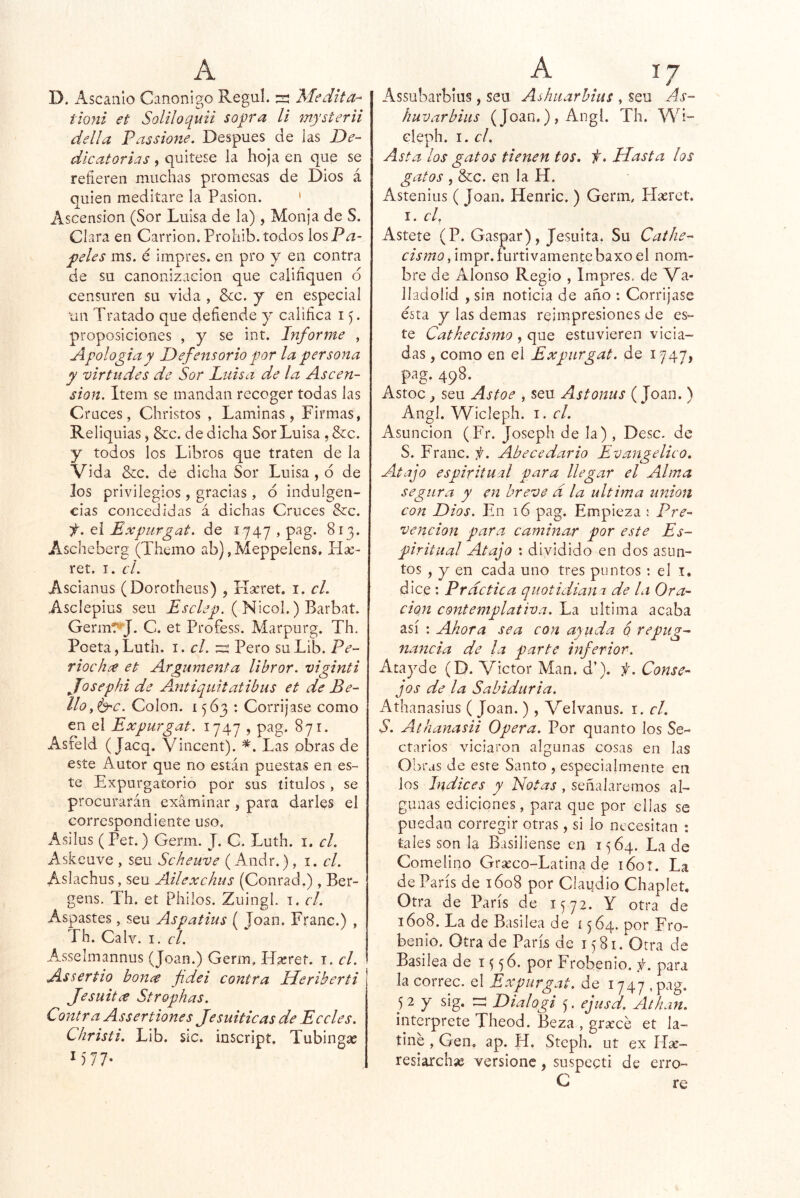 A
D. Ascanio Canonigo Regul. = Medita-
tioni et Soliloquii sopra li mysterii
della Passione. Despues de las De-
dicatorias, quitese la hoja en que se
refieren muchas promesas de Dios á
quien meditare la Pasion.
Ascension (Sor Luisa de la), Monja de S.
Clara en Carrion. Prohib. todos los Pa-
peles ms. é impres. en pro y en contra
de su canonizacion que califiquen ó
censuren su vida, &c. y en especial
un Tratado que defiende y califica 15.
proposiciones, y se int. Informe,
Apologia y Defensorio por la persona
y virtudes de Sor Luisa de la Ascen-
sion. Item se mandan recoger todas las
Cruces, Christos, Laminas, Firmas,
Reliquias, &c. de dicha Sor Luisa, &c.
y todos los Libros que traten de la
Vida &c. de dicha Sor Luisa, ó de
los privilegios, gracias, ó indulgen-
cias concedidas á dichas Cruces &c.
℣. el Expurgat. de 1747, pag. 813.
Ascheberg (Themo ab), Meppelens. Hæ-
ret. 1. cl.
Ascianus (Dorotheus), Hæret. 1. cl.
Asclepius seu Esclep. (Nicol.) Barbat.
Germ. J. C. et Profess. Marpurg. Th.
Poeta, Luth. 1. cl. = Pero su Lib. Pe-
riochæ et Argumenta libror. viginti
Josephi de Antiquitatibus et de Be-
llo, &c. Colon. 1563: Corrijase como
en el Expurgat. 1747, pag. 871.
Asfeld (Jacq. Vincent). *. Las obras de
este Autor que no están puestas en es-
te Expurgatorio por sus titulos, se
procurarán exâminar, para darles el
correspondiente uso.
Asilus (Pet.) Germ. J. C. Luth. 1. cl.
Askeuve, seu Scheuve (Andr.), 1. cl.
Aslachus, seu Ailexchus (Conrad.), Ber-
gens. Th. et Philos. Zuingl. 1. cl.
Aspastes, seu Aspatius (Joan. Franc.),
Th. Calv. 1. cl.
Asselmannus (Joan.) Germ. Hæret. 1. cl.
Assertio bonæ fidei contra Heriberti
Jesuitæ Strophas.
Contra Assertiones Jesuiticas de Eccles.
Christi. Lib. sic. inscript. Tubingæ
1577.
A 17
Assubarbius, seu Ashuarbius, seu As-
huvarbius (Joan.), Angl. Th. Wi-
cleph. 1. cl.
Asta los gatos tienen tos. ℣. Hasta los
gatos, &c. en la H.
Astenius (Joan. Henric.) Germ. Hæret.
1. cl.
Astete (P. Gaspar), Jesuita. Su Cathe-
cismo, impr. furtivamente baxo el nom-
bre de Alonso Regio, Impres. de Va-
lladolid, sin noticia de año: Corrijase
ésta y las demas reimpresiones de es-
te Cathecismo, que estuvieren vicia-
das, como en el Expurgat. de 1747,
pag. 498.
Astoc, seu Astoe, seu Astonus (Joan.)
Angl. Wicleph. 1. cl.
Asuncion (Fr. Joseph de la), Desc. de
S. Franc. ℣. Abecedario Evangelico.
Atajo espiritual para llegar el Alma
segura y en breve á la ultima union
con Dios. En 16 pag. Empieza: Pre-
vencion para caminar por este Es-
piritual Atajo: dividido en dos asun-
tos, y en cada uno tres puntos: el 1.
dice: Práctica quotidiana de la Ora-
cion contemplativa. La ultima acaba
así: Ahora sea con ayuda ó repug-
nancia de la parte inferior.
Atayde (D. Victor Man. d'). ℣. Conse-
jos de la Sabiduria.
Athanasius (Joan.), Velvanus. 1. cl.
S. Athanasii Opera. Por quanto los Se-
ctarios viciaron algunas cosas en las
Obras de este Santo, especialmente en
los Indices y Notas, señalaremos al-
gunas ediciones, para que por ellas se
puedan corregir otras, si lo necesitan:
tales son la Basiliense en 1564. La de
Comelino Græco-Latina de 1601. La
de París de 1608 por Claudio Chaplet.
Otra de París de 1572. Y otra de
1608. La de Basilea de 1564. por Fro-
benio. Otra de París de 1581. Otra de
Basilea de 1556. por Frobenio. ℣. para
la correc. el Expurgat. de 1747, pag.
52 y sig. = Dialogi 5. ejusd. Athan.
interprete Theod. Beza, græcè et la-
tinè, Gen. ap. H. Steph. ut ex Hæ-
resiarchæ versione, suspecti de erro-
C re